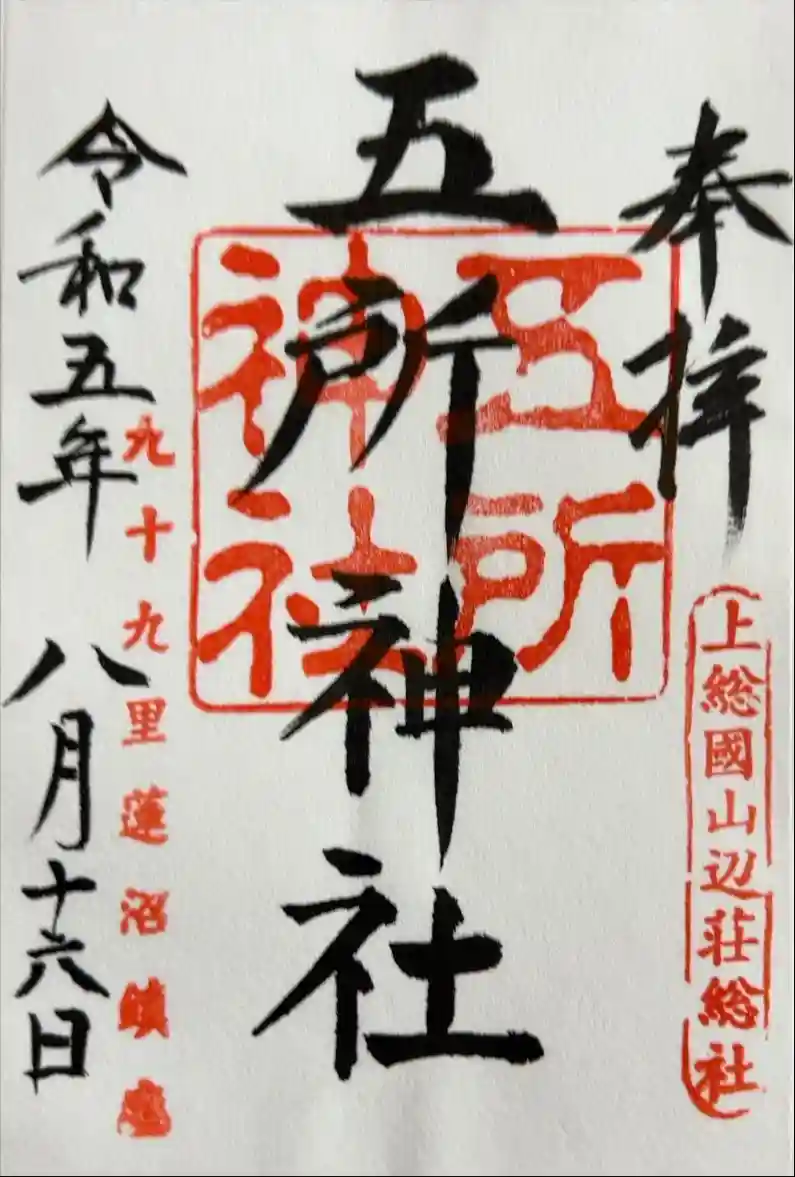 奉拝
上総國山辺荘総社
五所神社
五所神社
九十九里蓮沼鎮座
令和五年
八月十六日